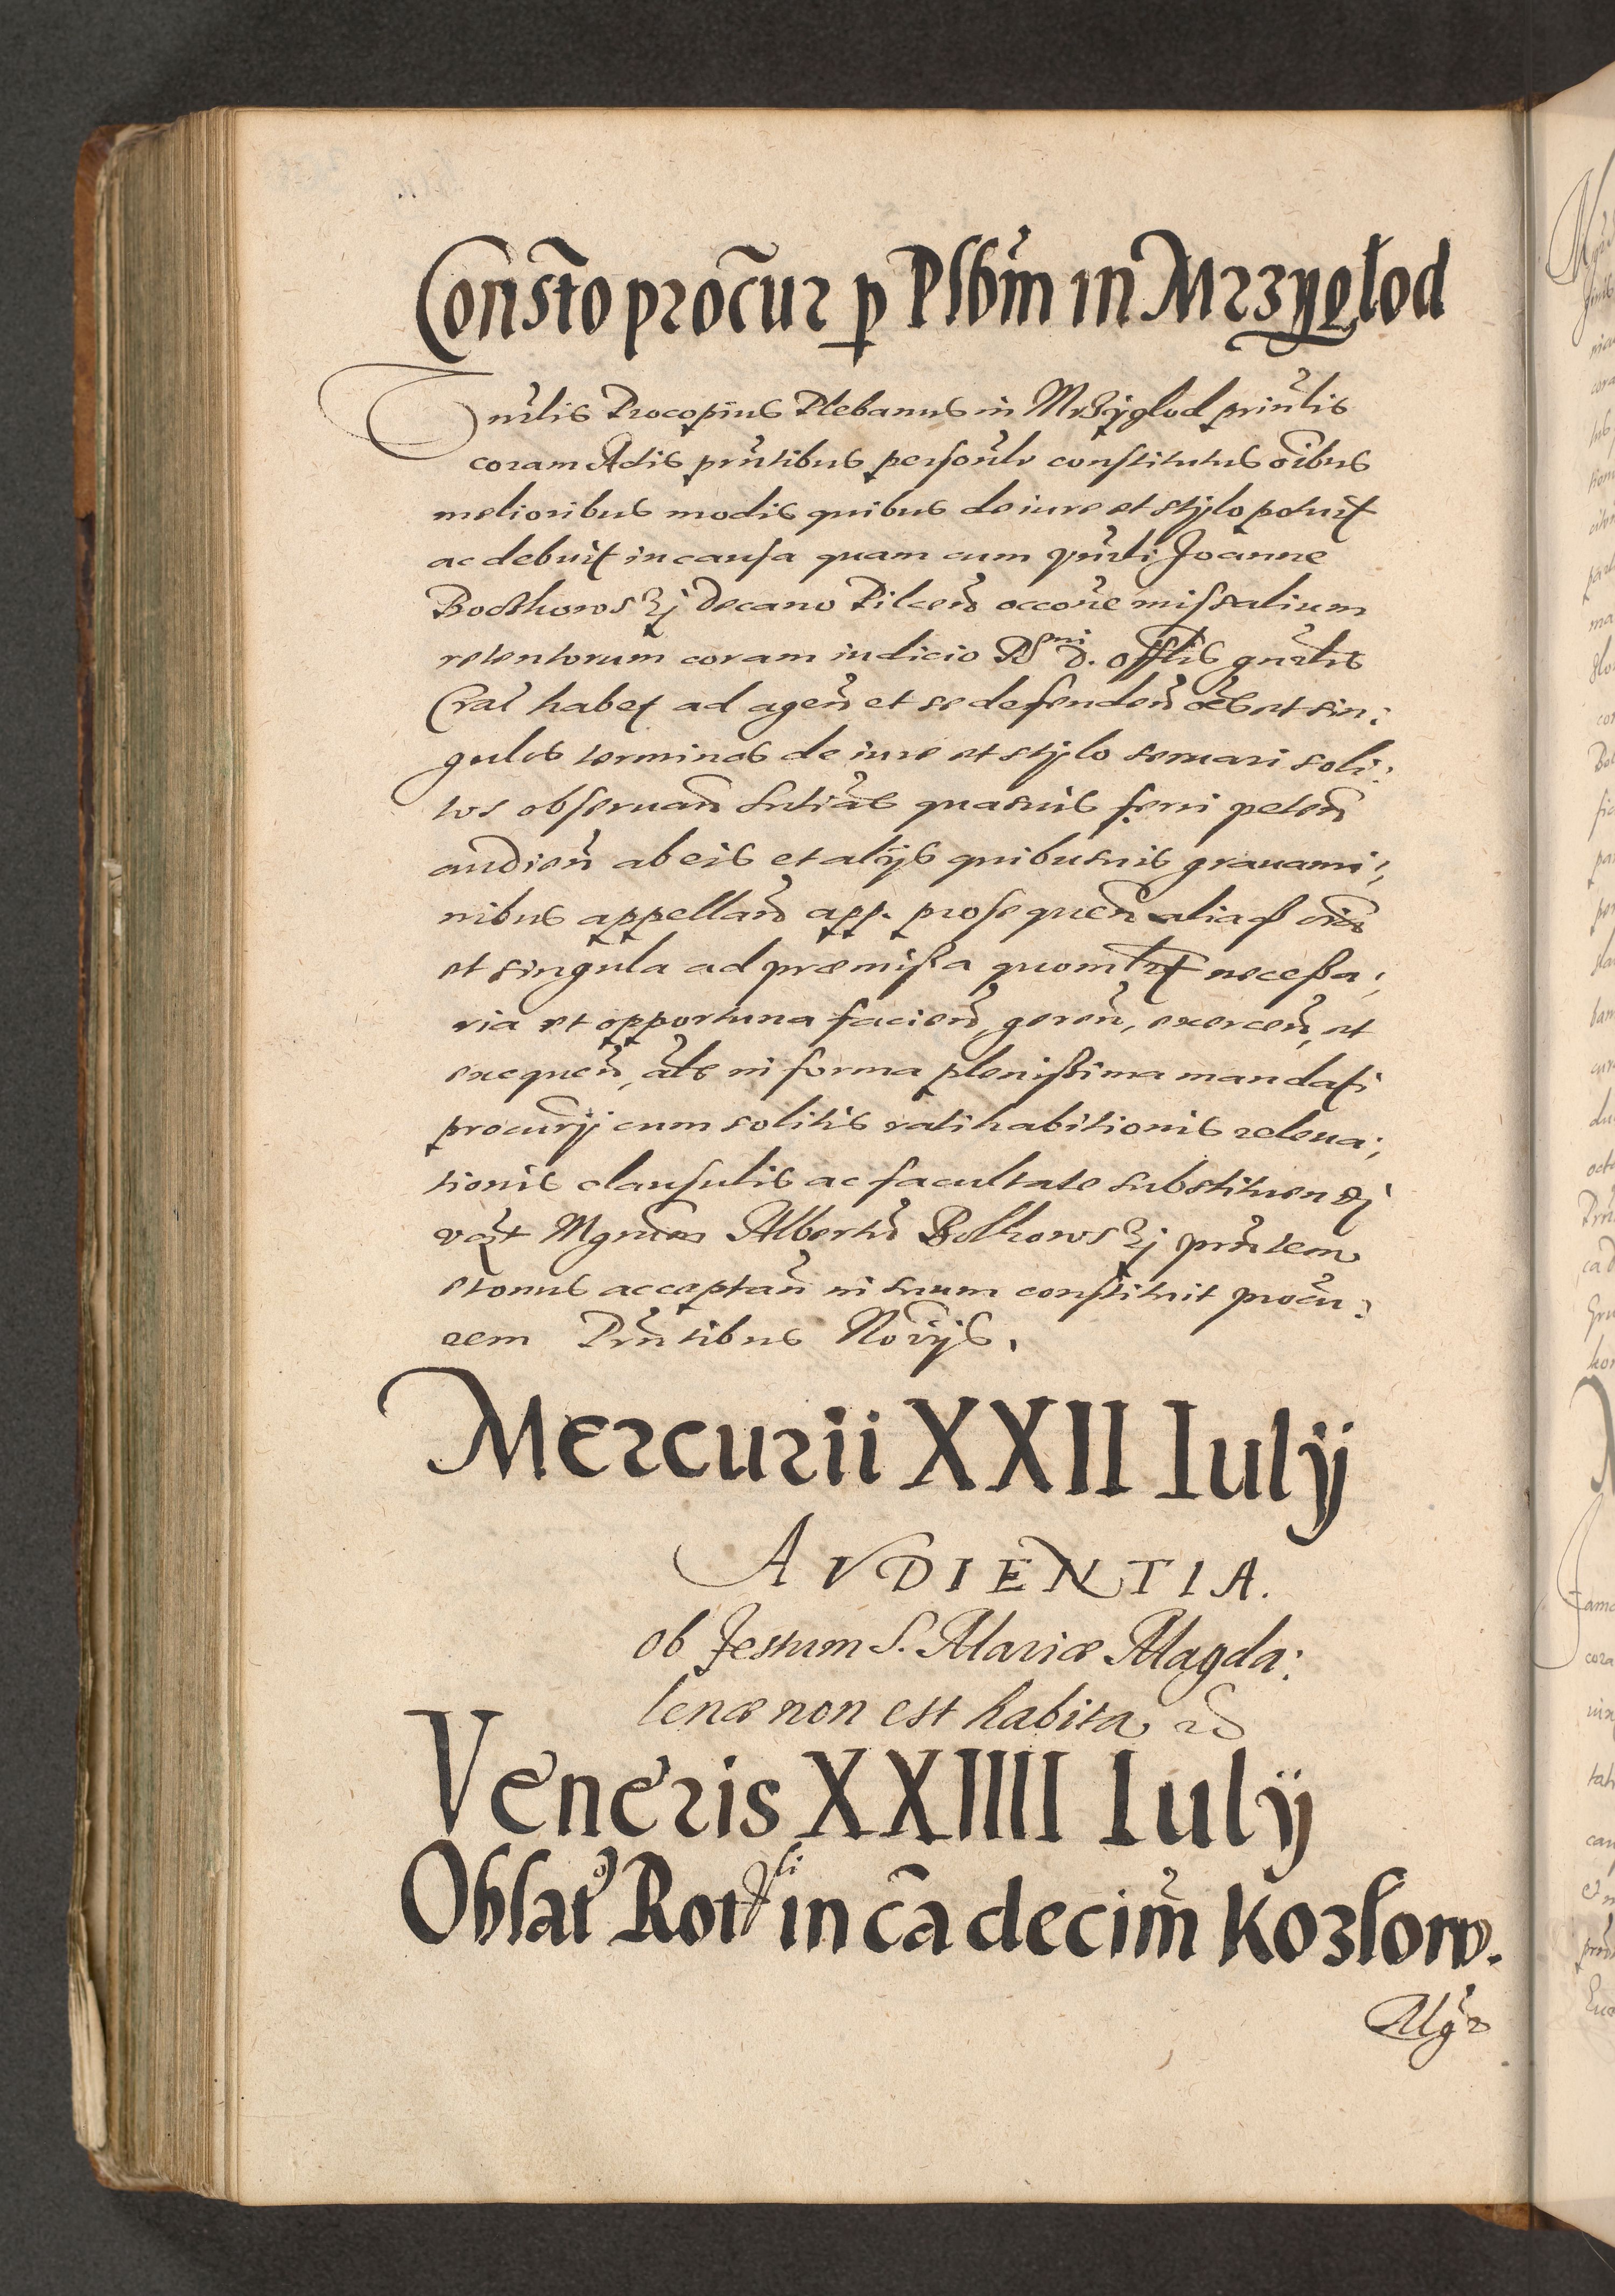 Consto procur p Plbm in Mrzyglod
Procopius Plebanus in Mrziglod prinlis
coram Actis pntibus personlr constitutus oibus
melioribus modis quibus de iure et stylo potuit
ac debuit in causa quam cum Joanne
Decano Pilcen occone missalium
retentorum coram iudicio Rdmi D. offlis gnrlis
Cral habet ad agen et se defenden oes et sin:
gulos terminos de iure et stylo seruari soli:
tos obseruan sntias quasuis ferri peten
audien ab eis et alijs quibusuis grauami:
nibus appellan app. prosequen aliaq oia
et singula ad præmissa quomlt necessa:
ria et opportuna facien, geren, exercen, et
exequen, als in forma plenissima mandati
procurij cum solitis ratihabitionis releua:
tionis clausulis ac facultate substituendi
Mgrum Albertu prntem
et onus acceptan in suum constituit procu:
rem Prntibus Norijs.
Mercurii XXII Iulij
AVDIENTIA.
ob festum S. Mariæ Magda:
lenæ non est habita
Veneris XXIIII Iulij
Oblat Rotli in ca decim Kozlow.